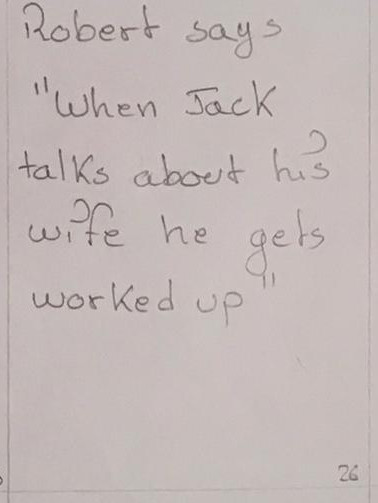 Robert says
"When Jack
talks about his
wife he gets
worked up"
26